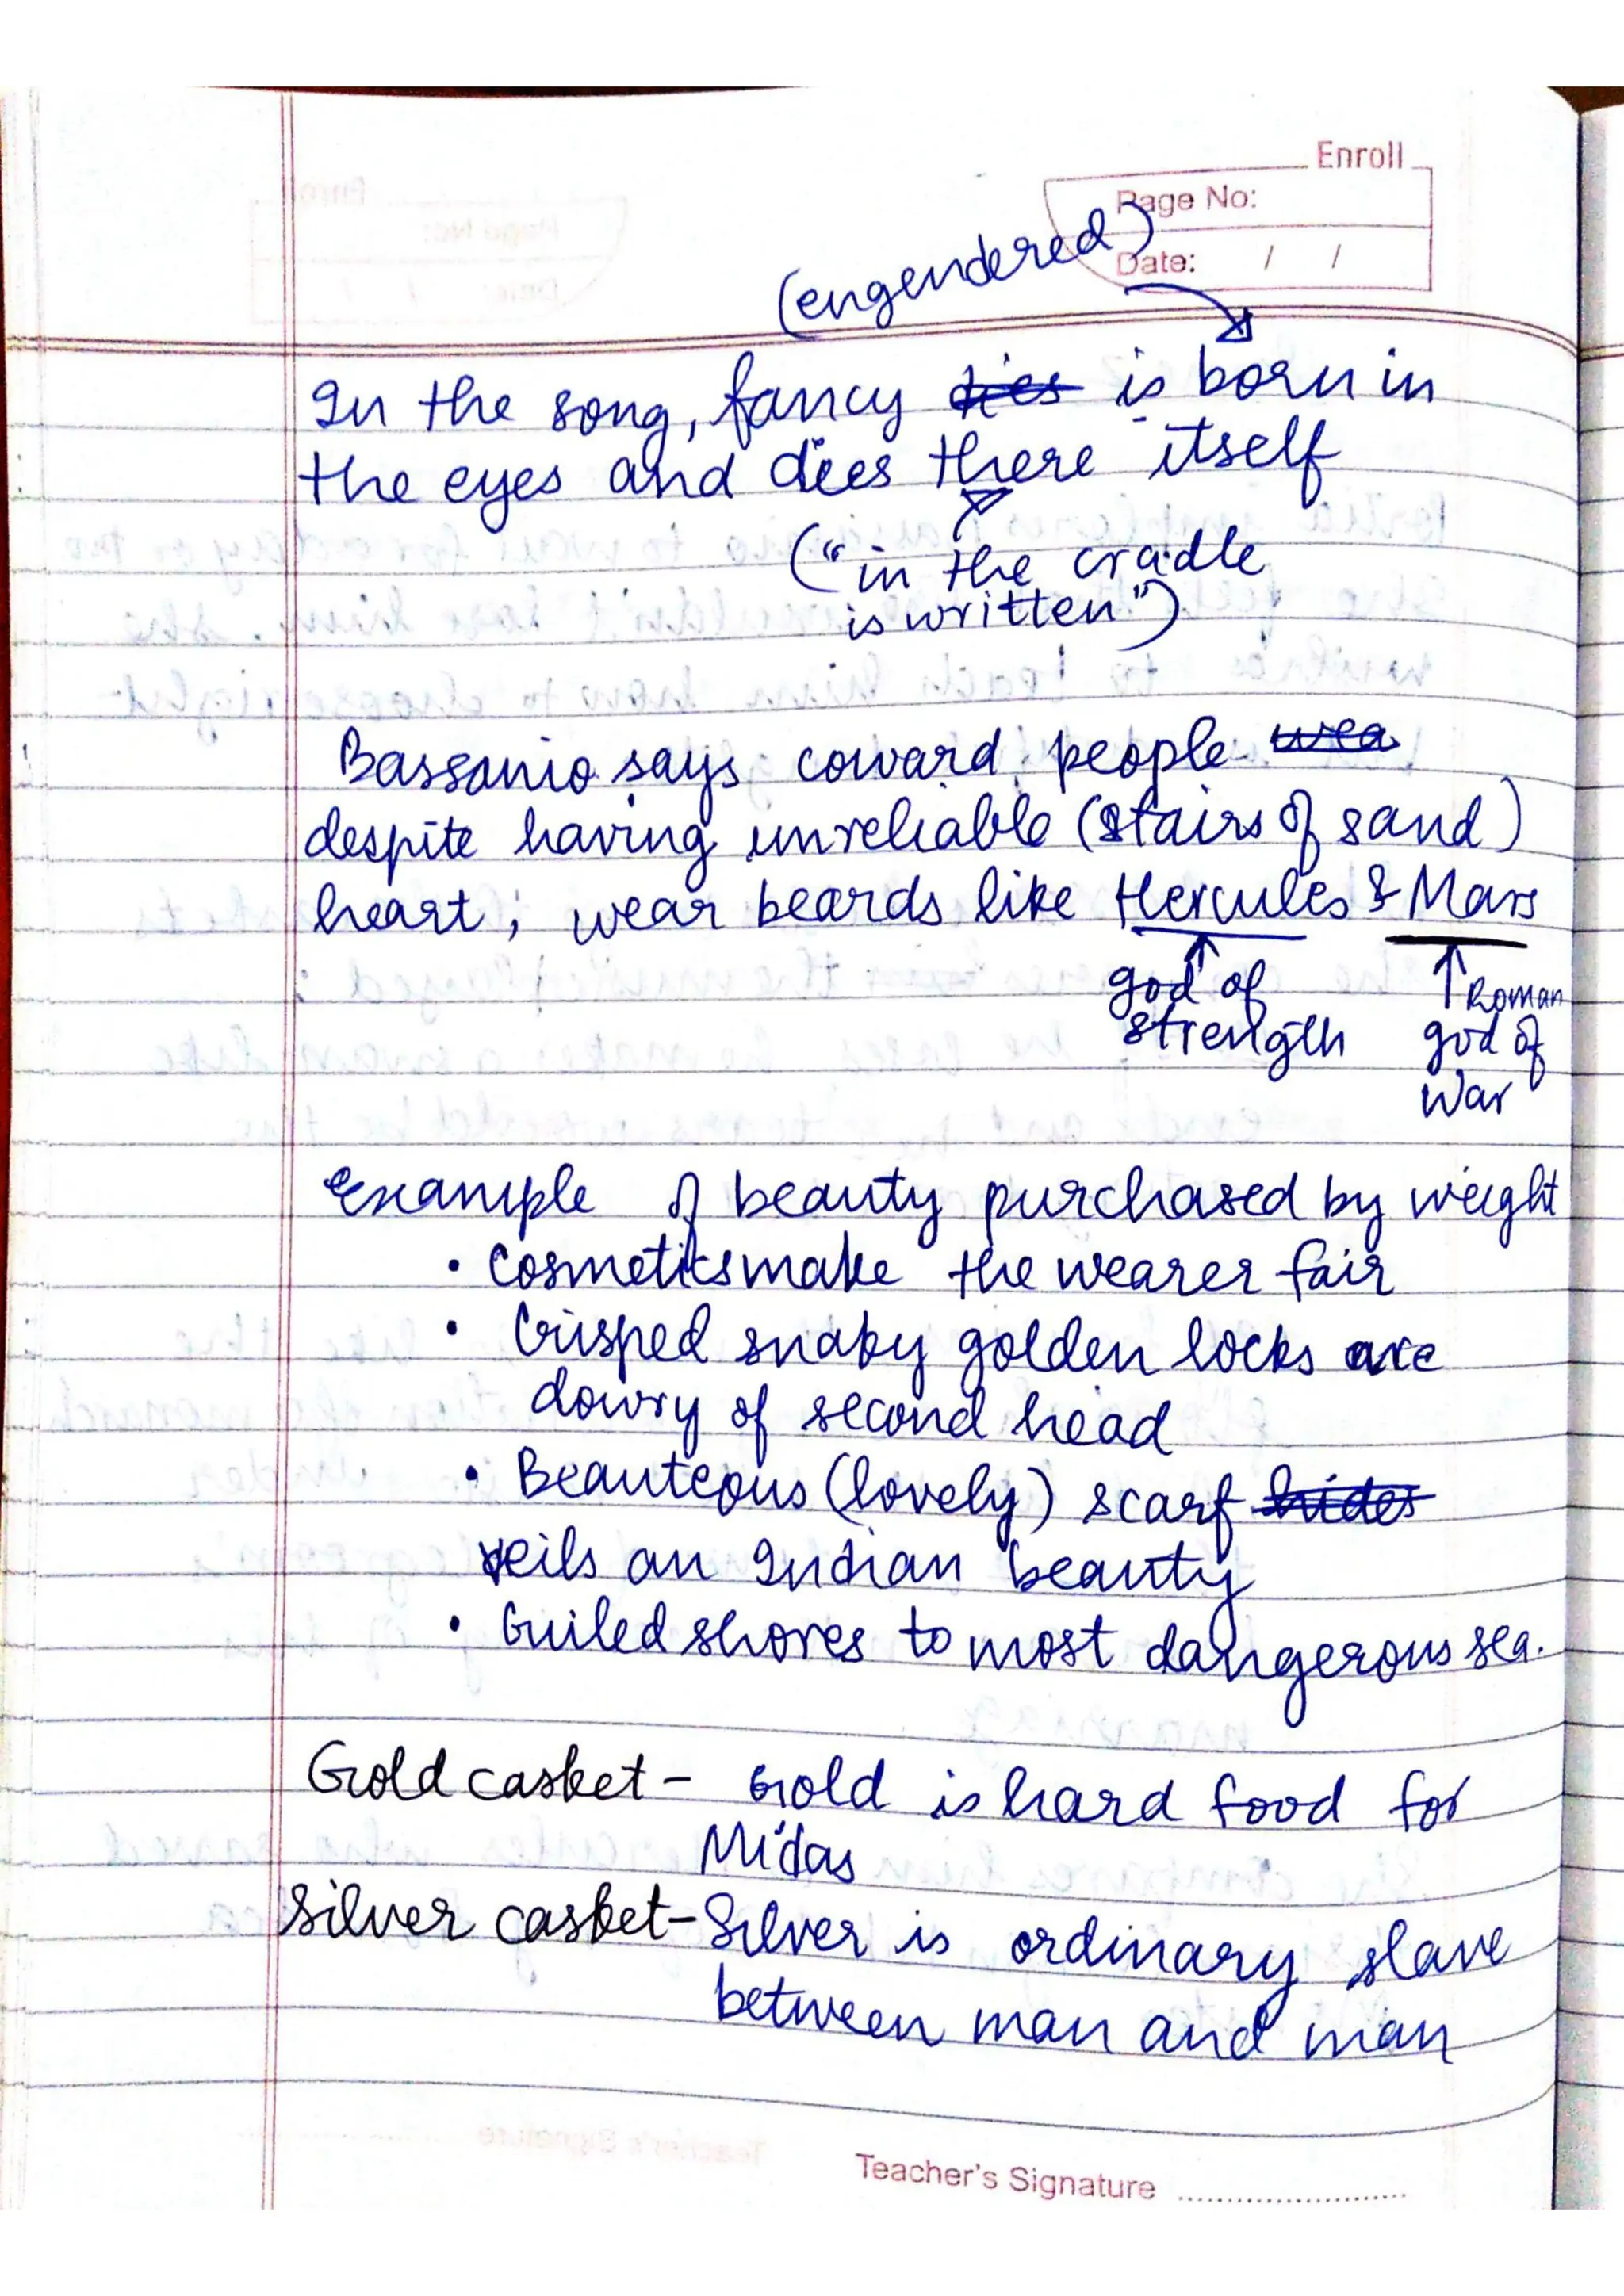 Enroll
Page No:
Date: / /
(engendered)
In the song, fancy dies is born in
the eyes and dies there itself
("in the cradle
is written")
Bassanio says coward people wea
despite having unreliable (stairs of sand)
heart; wear beards like Hercules & Mars
god of
strength
Roman
god of
war
Example of beauty purchased by weight
• Cosmetics make the wearer fair
• Crisped snaky golden locks are
dowry of second head
• Beauteous (lovely) scarf hides
veils an Indian beauty
• Guiled shores to most dangerous sea.
Gold casket - Gold is hard food for
Midas
Silver casket - Silver is ordinary slave
between man and man
Teacher's Signature ........................